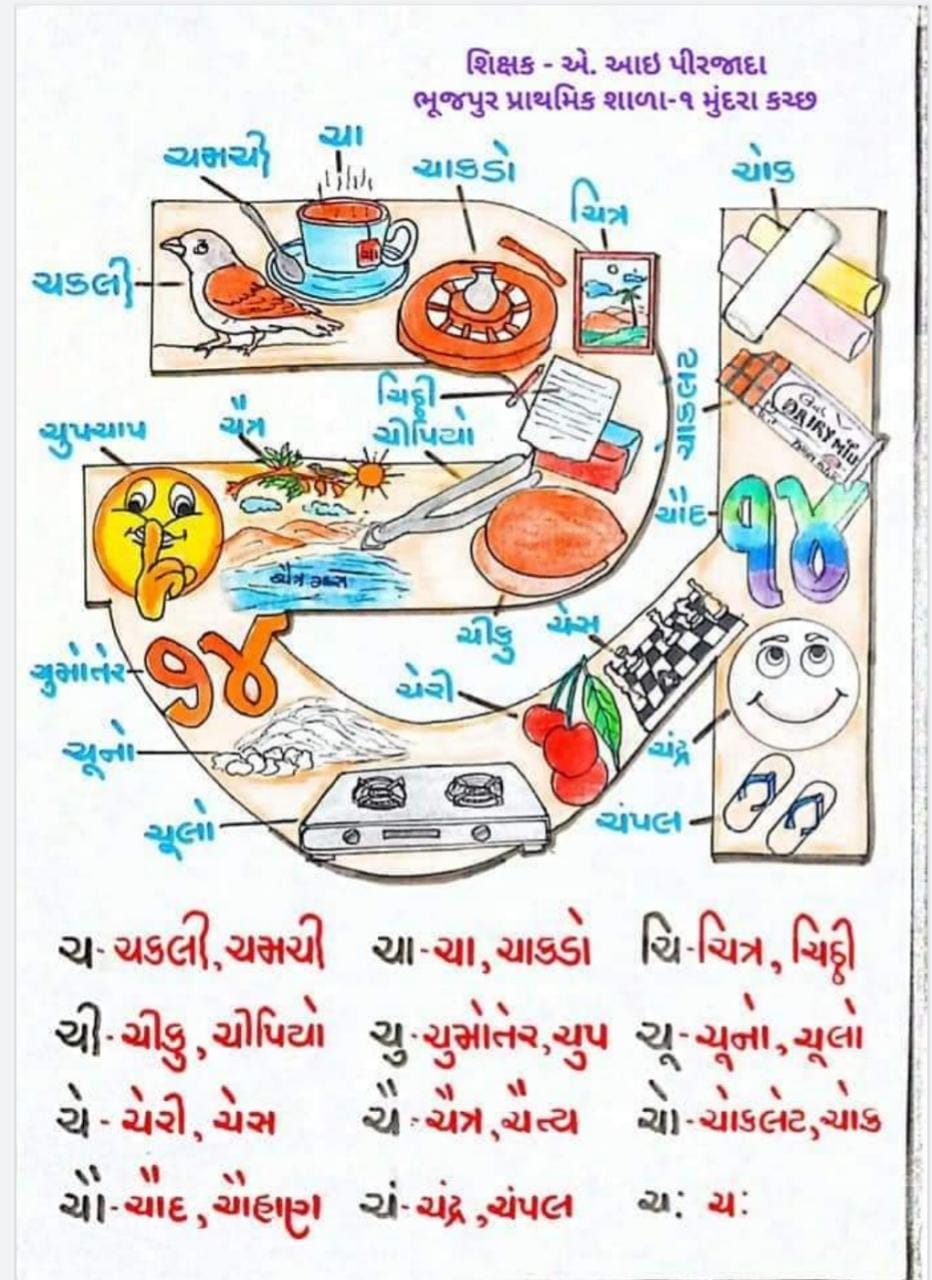 શિક્ષક - એ. આઇ પીરજાદા
ભૂજપુર પ્રાથમિક શાળા-૧ મુંદરા કચ્છ
ચમચી
ચા
ચાકડો
ચોક
ચિત્ર
ચકલી
ચા
ચિઠ્ઠી
ચીપિયો
ચૈત્ર
ચુપચાપ
ચોકલેટ
DAIRY MILK
ચૌદ
૧૪
ચીકુ
ચેસ
ચુમોતેર
૭૪
ચેરી
ચૂનો
ચંદ્ર
ચૂલો
ચંપલ
ચ- ચકલી, ચમચી ચા-ચા, ચાકડો ચિ-ચિત્ર, ચિઠ્ઠી
ચી-ચીકુ, ચીપિયો ચુ-ચુમોતેર, ચુપ ચૂ-ચૂનો, ચૂલો
ચે - ચેરી, ચેસ ચૈ-ચૈત્ર, ચૈત્ય ચો-ચોકલેટ, ચોક
ચૌ-ચૌદ, ચૌહાણ ચં-ચંદ્ર, ચંપલ ચઃ ચઃ